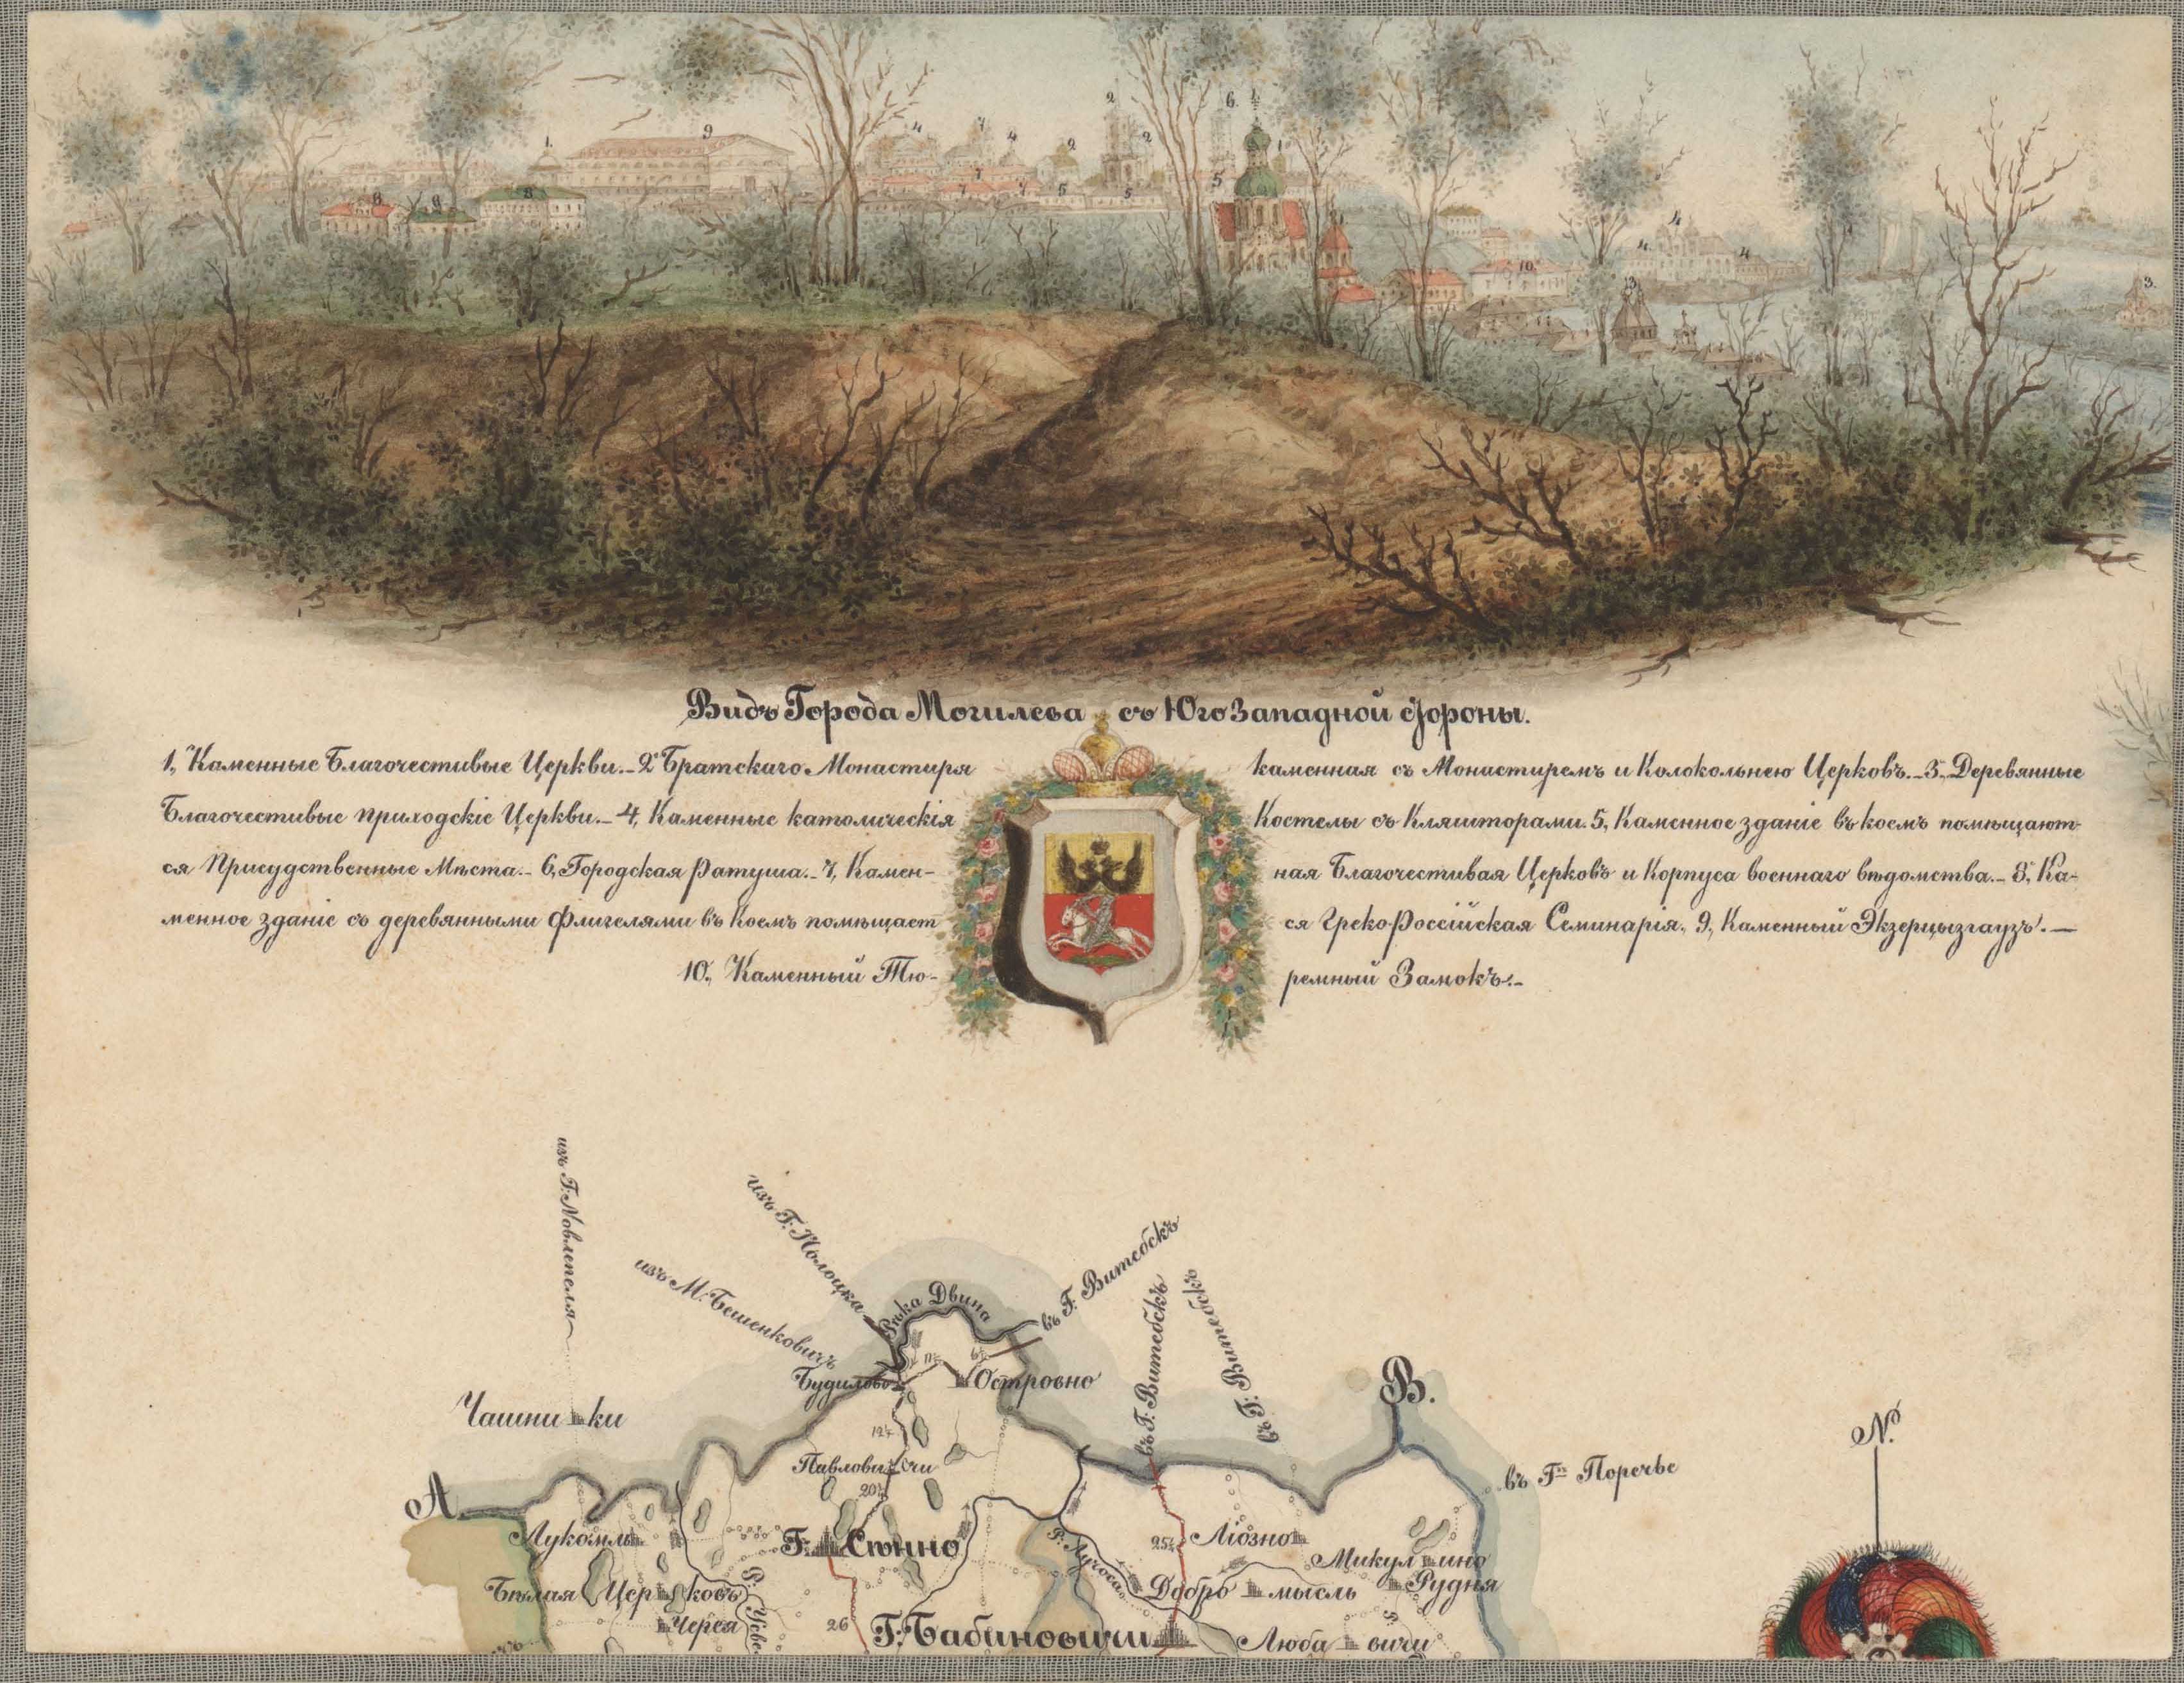 1. 9 4 7 4 2 2 2 6. 1
8 8 8 7 7 5 5 5 4 4 4 10. 3 3.
Видъ Города Могилева съ ЮгоЗападной стороны.
1, Каменные Благочестивые Церкви._ 2, Братскаго Монастиря каменная съ Монастиремъ и Колокольнею Церковъ._ 3, Деревянные
Благочестивые приходскіе Церкви._ 4, Каменные католическія Костелы съ Кляшторами. 5, Каменное зданіе въ коемъ помѣщают
ся Присудственные Мѣста._ 6, Городская Ратуша._ 7, Камен- ная Благочестивая Церковъ и Корпуса военнаго вѣдомства._ 8, Ка-
менное зданіе съ деревянными Флигелями въ Коемъ помѣщает ся ГрекоРоссійская Семинарія. 9, Каменный Экзерцызгаузъ.—
10, Каменный Тю- ремный Замокъ._
изъ Г. Новлепеля
изъ М. Бешенковичъ
изъ Г. Полоцка
Рѣка Двина
въ Г. Витебскъ
въ Г. Витебскъ
въ Г. Витебскъ
Будилово
Островно
В.
Чашники
12¼
въ Г. Поречье
№
Павловичи
А
20½
Лукомль
Г. Сѣнно
Р. Лучоса
25½
Ліозно
Микулино
Рудня
Бѣлая Церковъ
Добромысль
Черея
26
Г. Бабиновичи
Любавичи